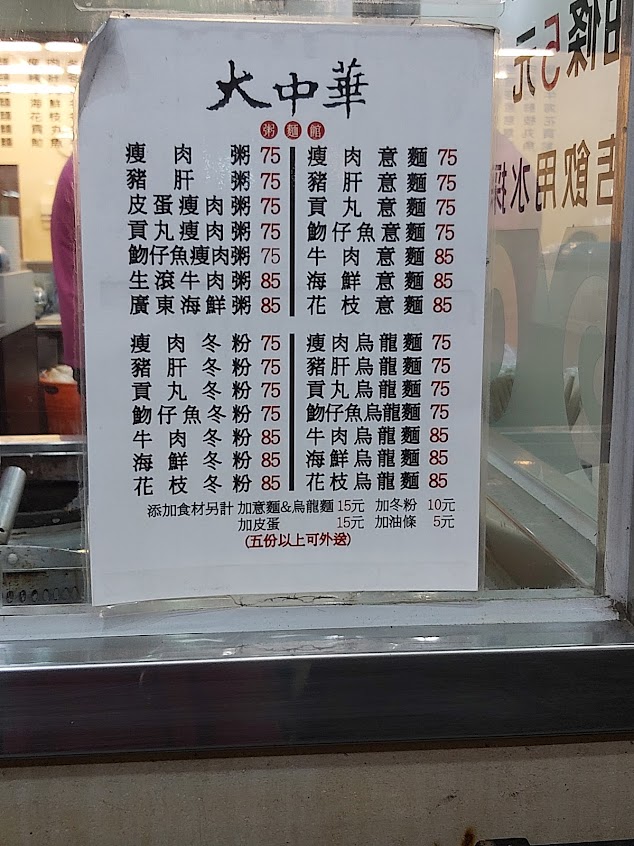 大中華
粥麵館
瘦肉粥 75
豬肝粥 75
皮蛋瘦肉粥 75
貢丸瘦肉粥 75
魩仔魚瘦肉粥 75
生滾牛肉粥 85
廣東海鮮粥 85
瘦肉意麵 75
豬肝意麵 75
貢丸意麵 75
魩仔魚意麵 75
牛肉意麵 85
海鮮意麵 85
花枝意麵 85
瘦肉冬粉 75
豬肝冬粉 75
貢丸冬粉 75
魩仔魚冬粉 75
牛肉冬粉 85
海鮮冬粉 85
花枝冬粉 85
瘦肉烏龍麵 75
豬肝烏龍麵 75
貢丸烏龍麵 75
魩仔魚烏龍麵 75
牛肉烏龍麵 85
海鮮烏龍麵 85
花枝烏龍麵 85
添加食材另計 加意麵&烏龍麵 15元 加冬粉 10元
加皮蛋 15元 加油條 5元
(五份以上可外送)
油條5元
店飲用水採